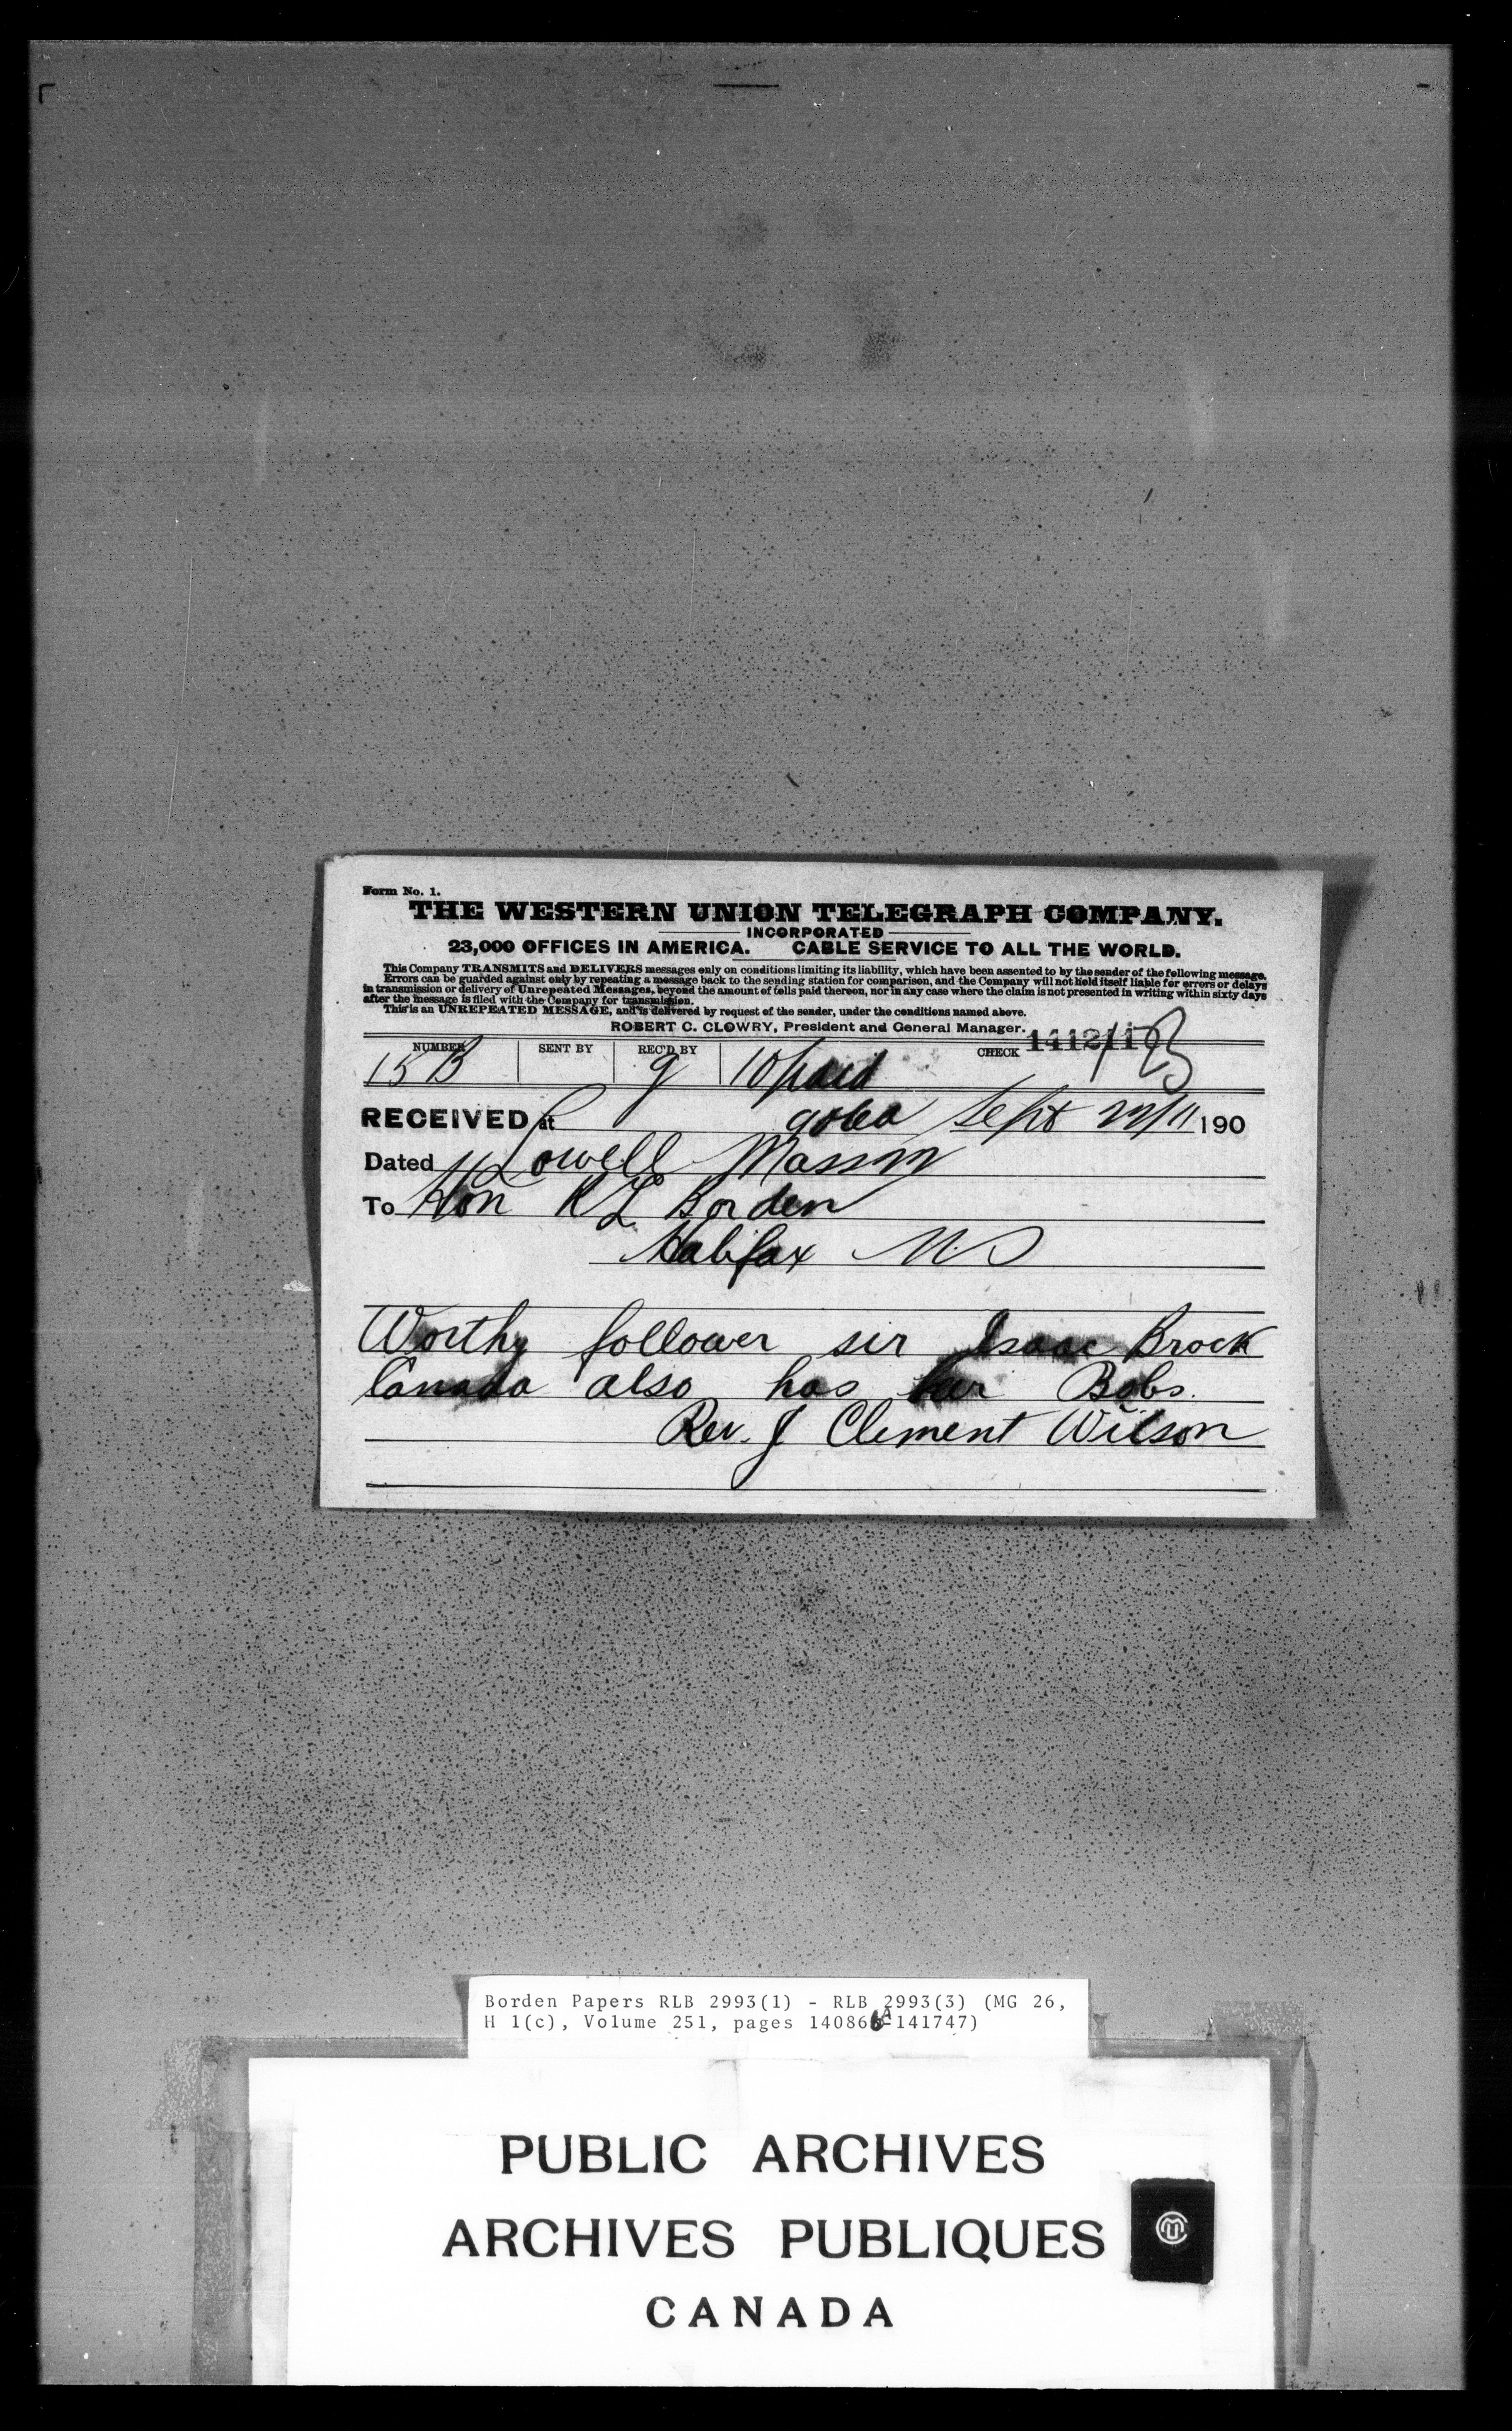 Form No. 1.
THE WESTERN UNION TELEGRAPH COMPANY.
INCORPORATED
23,000 OFFICES IN AMERICA. CABLE SERVICE TO ALL THE WORLD.
This Company TRANSMITS and DELIVERS messages only on conditions limiting its liability, which have been assented to by the sender of the following message.
Errors can be guarded against only by repeating a message back to the sending station for comparison, and the Company will not hold itself liable for errors or delays
in transmission or delivery of Unrepeated Messages, beyond the amount of tolls paid thereon, nor in any case where the claim is not presented in writing within sixty days
after the message is filed with the Company for transmission.
This is an UNREPEATED MESSAGE, and is delivered by request of the sender, under the conditions named above.
ROBERT C. CLOWRY, President and General Manager.
NUMBER SENT BY REC'D BY CHECK
15 B g 10 paid
RECEIVED at Sept 22/11 190
Dated Lowell Mass
To Hon R L Borden
Halifax NS
Worthy follower sir Isaac Brock
Canada also has her Bobs.
Rev. J Clement Wilson
Borden Papers RLB 2993(1) - RLB 2993(3) (MG 26,
H 1(c), Volume 251, pages 140866A-141747)
PUBLIC ARCHIVES
ARCHIVES PUBLIQUES
CANADA